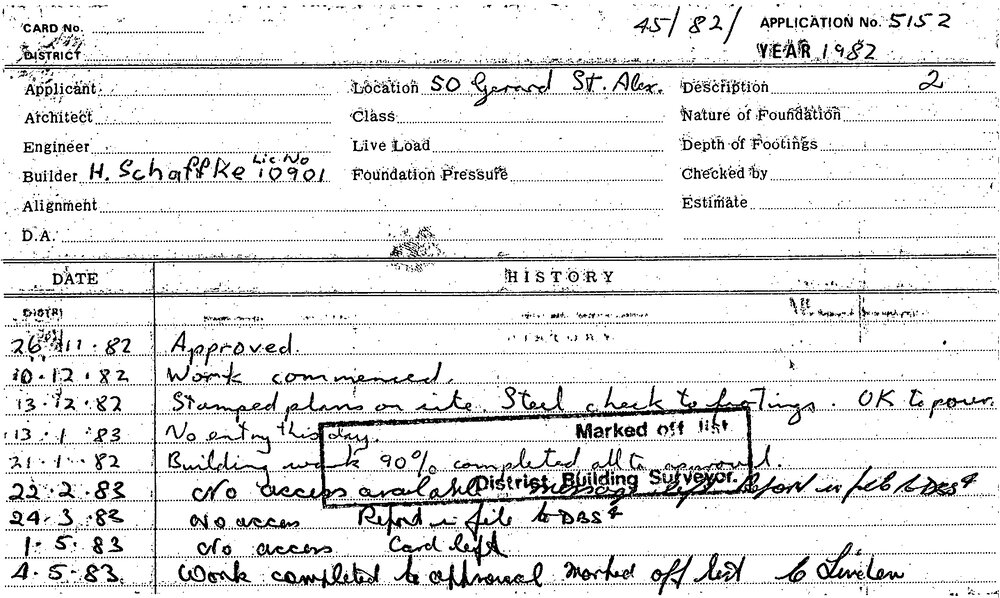 CARD No.
45/82/ APPLICATION No. 5152
DISTRICT
YEAR 1982
Applicant Location 50 Gerard St. Alex. Description 2
Architect Class Nature of Foundation
Engineer Live Load Depth of Footings
Builder H. Schaffke Lic No 10901 Foundation Pressure Checked by
Alignment Estimate
D.A.
DATE HISTORY
HISTORY
26.11.82 Approved.
10.12.82 Work commenced.
13.12.82 Stamped plans on site. Steel check to footings. OK to pour.
13.1.83 No entry this day.
Marked off list
21.1.82 Building work 90% completed all to approval.
District Building Surveyor.
22.2.83 No access available message left Report in file to DBS
24.3.83 No access Report in file to DBS
1.5.83 No access Card left
4.5.83. Work completed to approval Marked off list